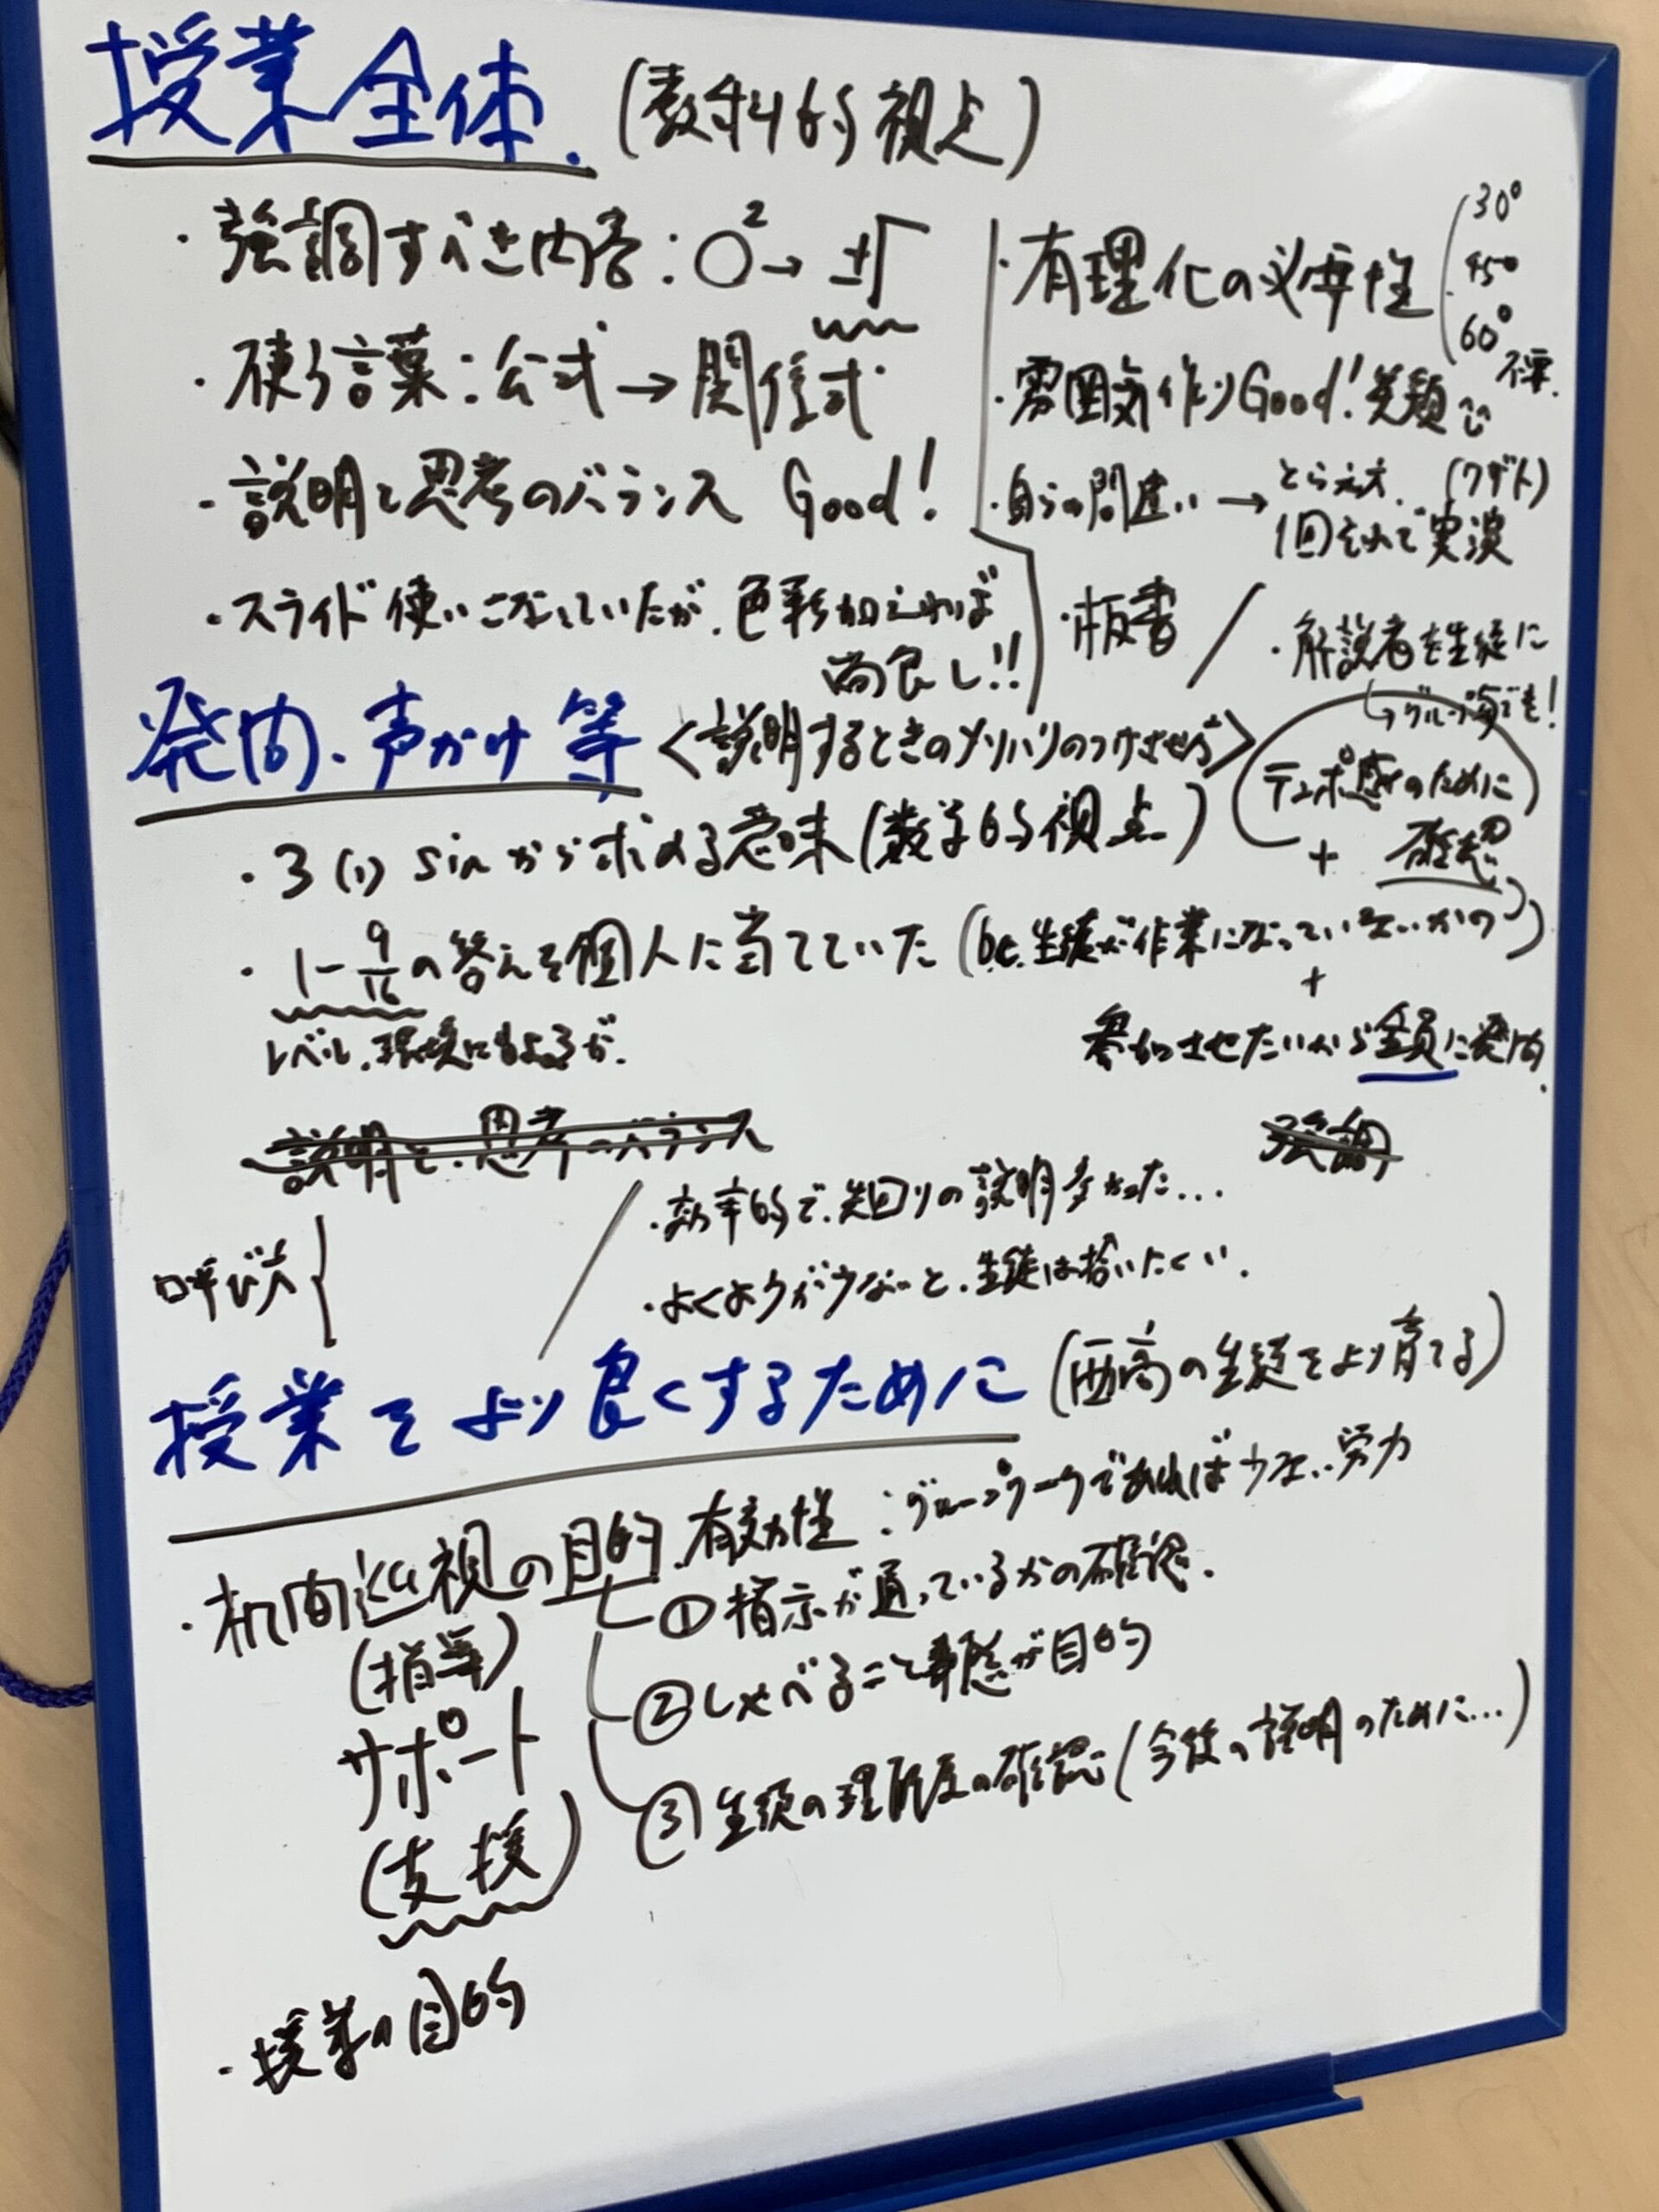 授業全体. (教科的視点)
・強調すべき内容:○²→±√
・使う言葉:公式→関係式
・説明と思考のバランス Good!
・スライド使いこなしていたが、色彩加えれば
尚良し!!
・有理化の必要性
30°
45°
60°
不要.
・雰囲気作りGood!笑顔で
・自らの間違い→とらえ方.. (ワザト)
1回止めて実演
・板書
・解説者を生徒に
↳グループ演でも!
発問、声かけ等 <説明するときのメリハリのつけさせ方>
テンポ感のために
+ 確認
・3(1) sinから求める意味(数学的視点)
・1-9/16の答えを個人に当てていた(b.c.生徒が作業になっていないかの)
+
レベル、環境にもよるが.
参加させたいから全員に発問.
説明と、思考のバランス
強調
呼び方{
・効率的で、先回りの説明多かった...
・よくようが少ないと、生徒は拾いにくい.
授業をより良くするために (西高の生徒をより育てる)
・机間巡視の目的、有効性:グループワークであれば少ない労力
(指導)
サポート
(支援)
①指示が通っているかの確認.
②しゃべること事態が目的
③生徒の理解度の確認(今後の説明のために...)
・授業の目的